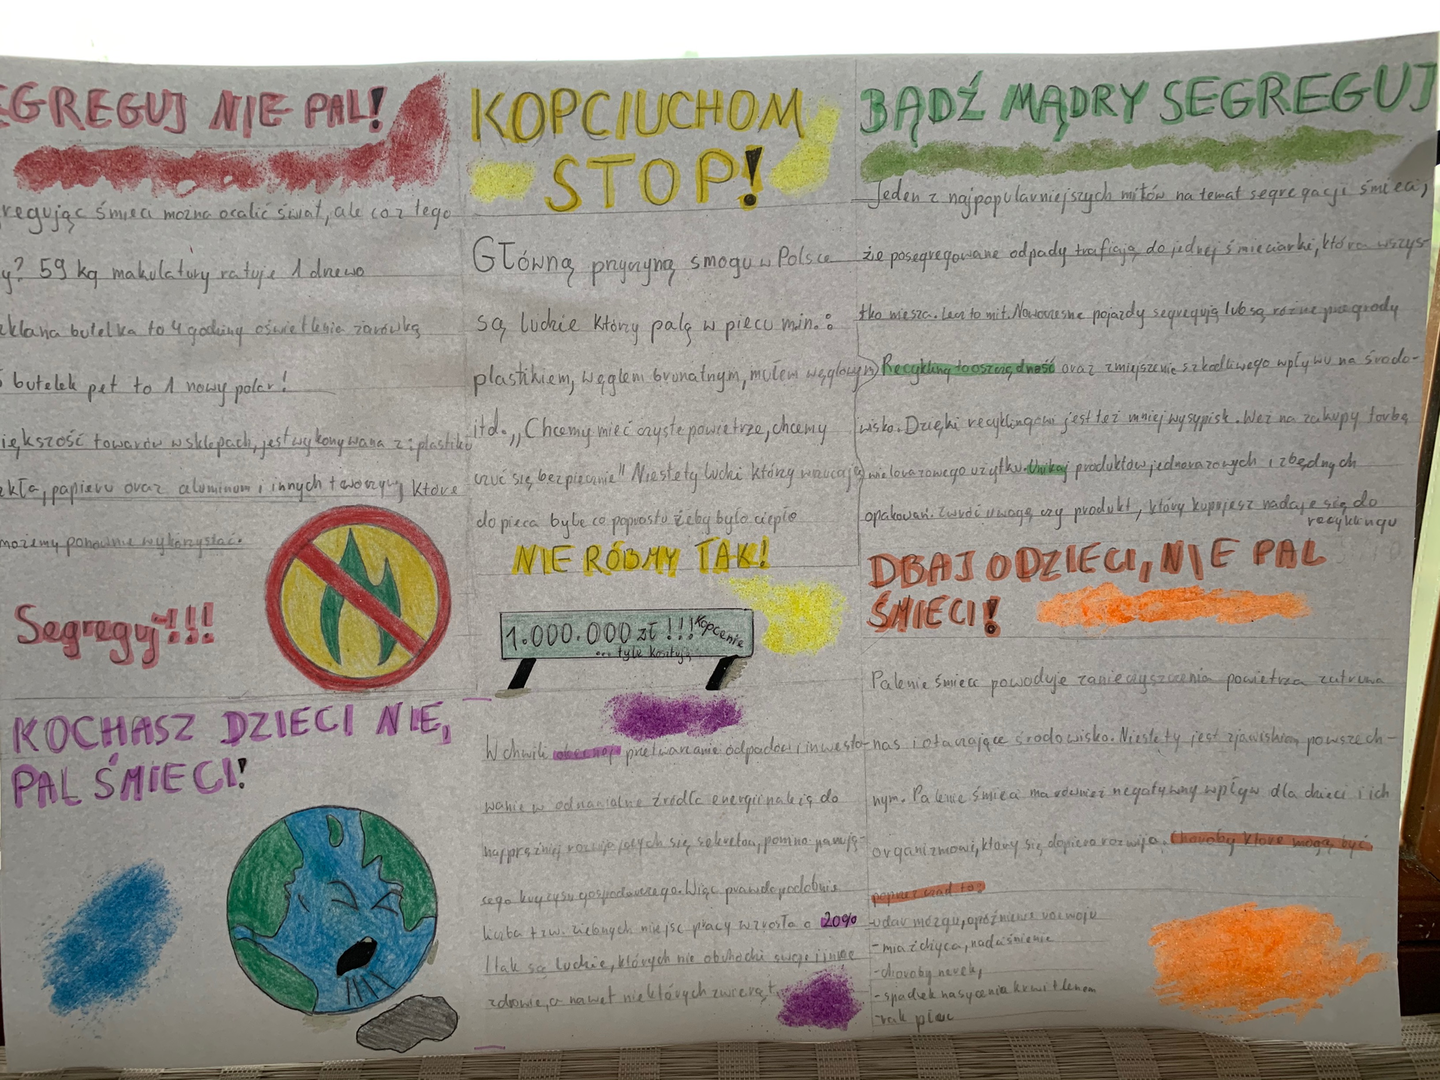 EGREGUJ NIE PAL!
regując śmieci można ocalić świat, ale co z tego
y? 59 kg makulatury ratuje 1 drzewo
zklana butelka to 4 godziny oświetlenia żarówką
butelek pet to 1 nowy polar!
iększość towarów w sklepach, jest wykonywana z: plastiku
zkła, papieru oraz aluminum i innych tworzyw, które
możemy ponownie wykorzystać.
Segreguj!!!
KOCHASZ DZIECI NIE,
PAL ŚMIECI!
KOPCIUCHOM
STOP!
Główną przyczyną smogu w Polsce
są ludzie którzy palą w piecu min.:
plastikiem, węglem brunatnym, mułem węglowym
itd. „Chcemy mieć czyste powietrze, chcemy
czuć się bezpiecznie" Niestety ludzi którzy wrzucają
do pieca byle co poprostu żeby było ciepło
NIE RÓBMY TAK!
1.000.000 zł!!! Kopcenie
... tyle kosztują
W chwili obecnej przetwarzanie odpadów i inwesto-
wanie w odnawialne źródła energii należą do
najprężniej rozwijających się sektorów, pomimo panują-
cego kryzysu gospodarczego. Więc prawdopodobnie
liczba tzw. zielonych miejsc pracy wzrosła o 20%
I tak są ludzie, których nie obchodzi swoje i inne
zdrowie, a nawet niektórych zwierząt.
BĄDŹ MĄDRY SEGREGUJ
Jeden z najpopularniejszych mitów na temat segregacji śmieci,
że posegregowane odpady trafiają do jednej śmieciarki, która wszys-
tko miesza. Lecz to mit. Nowoczesne pojazdy segregują lub są różne przegrody
Recykling to oszczędność oraz zmiejszenie szkodliwego wpływu na środo-
wisko. Dzięki recyklingowi jest też mniej wysypisk. Weź na zakupy torbę
wielorazowego użytku. Unikaj produktów jednorazowych i zbędnych
opakowań. Zwróć uwagę czy produkt, który kupujesz nadaje się do
recyklingu
DBAJ O DZIECI, NIE PAL
ŚMIECI!
Palenie śmieci powoduje zanieczyszczenia powietrza zatruwa
nas i otaczające środowisko. Niestety jest zjawiskiem powszech-
nym. Palenie śmieci ma również negatywny wpływ dla dzieci i ich
organizmowi, który się dopiero rozwija. Choroby które mogą być
poprzez czad to:
-udar mózgu, opóźnienie rozwoju
-miażdżyca, nadciśnienie
-choroby nerek,
-spadek nasycenia krwi tlenem
-rak płuc